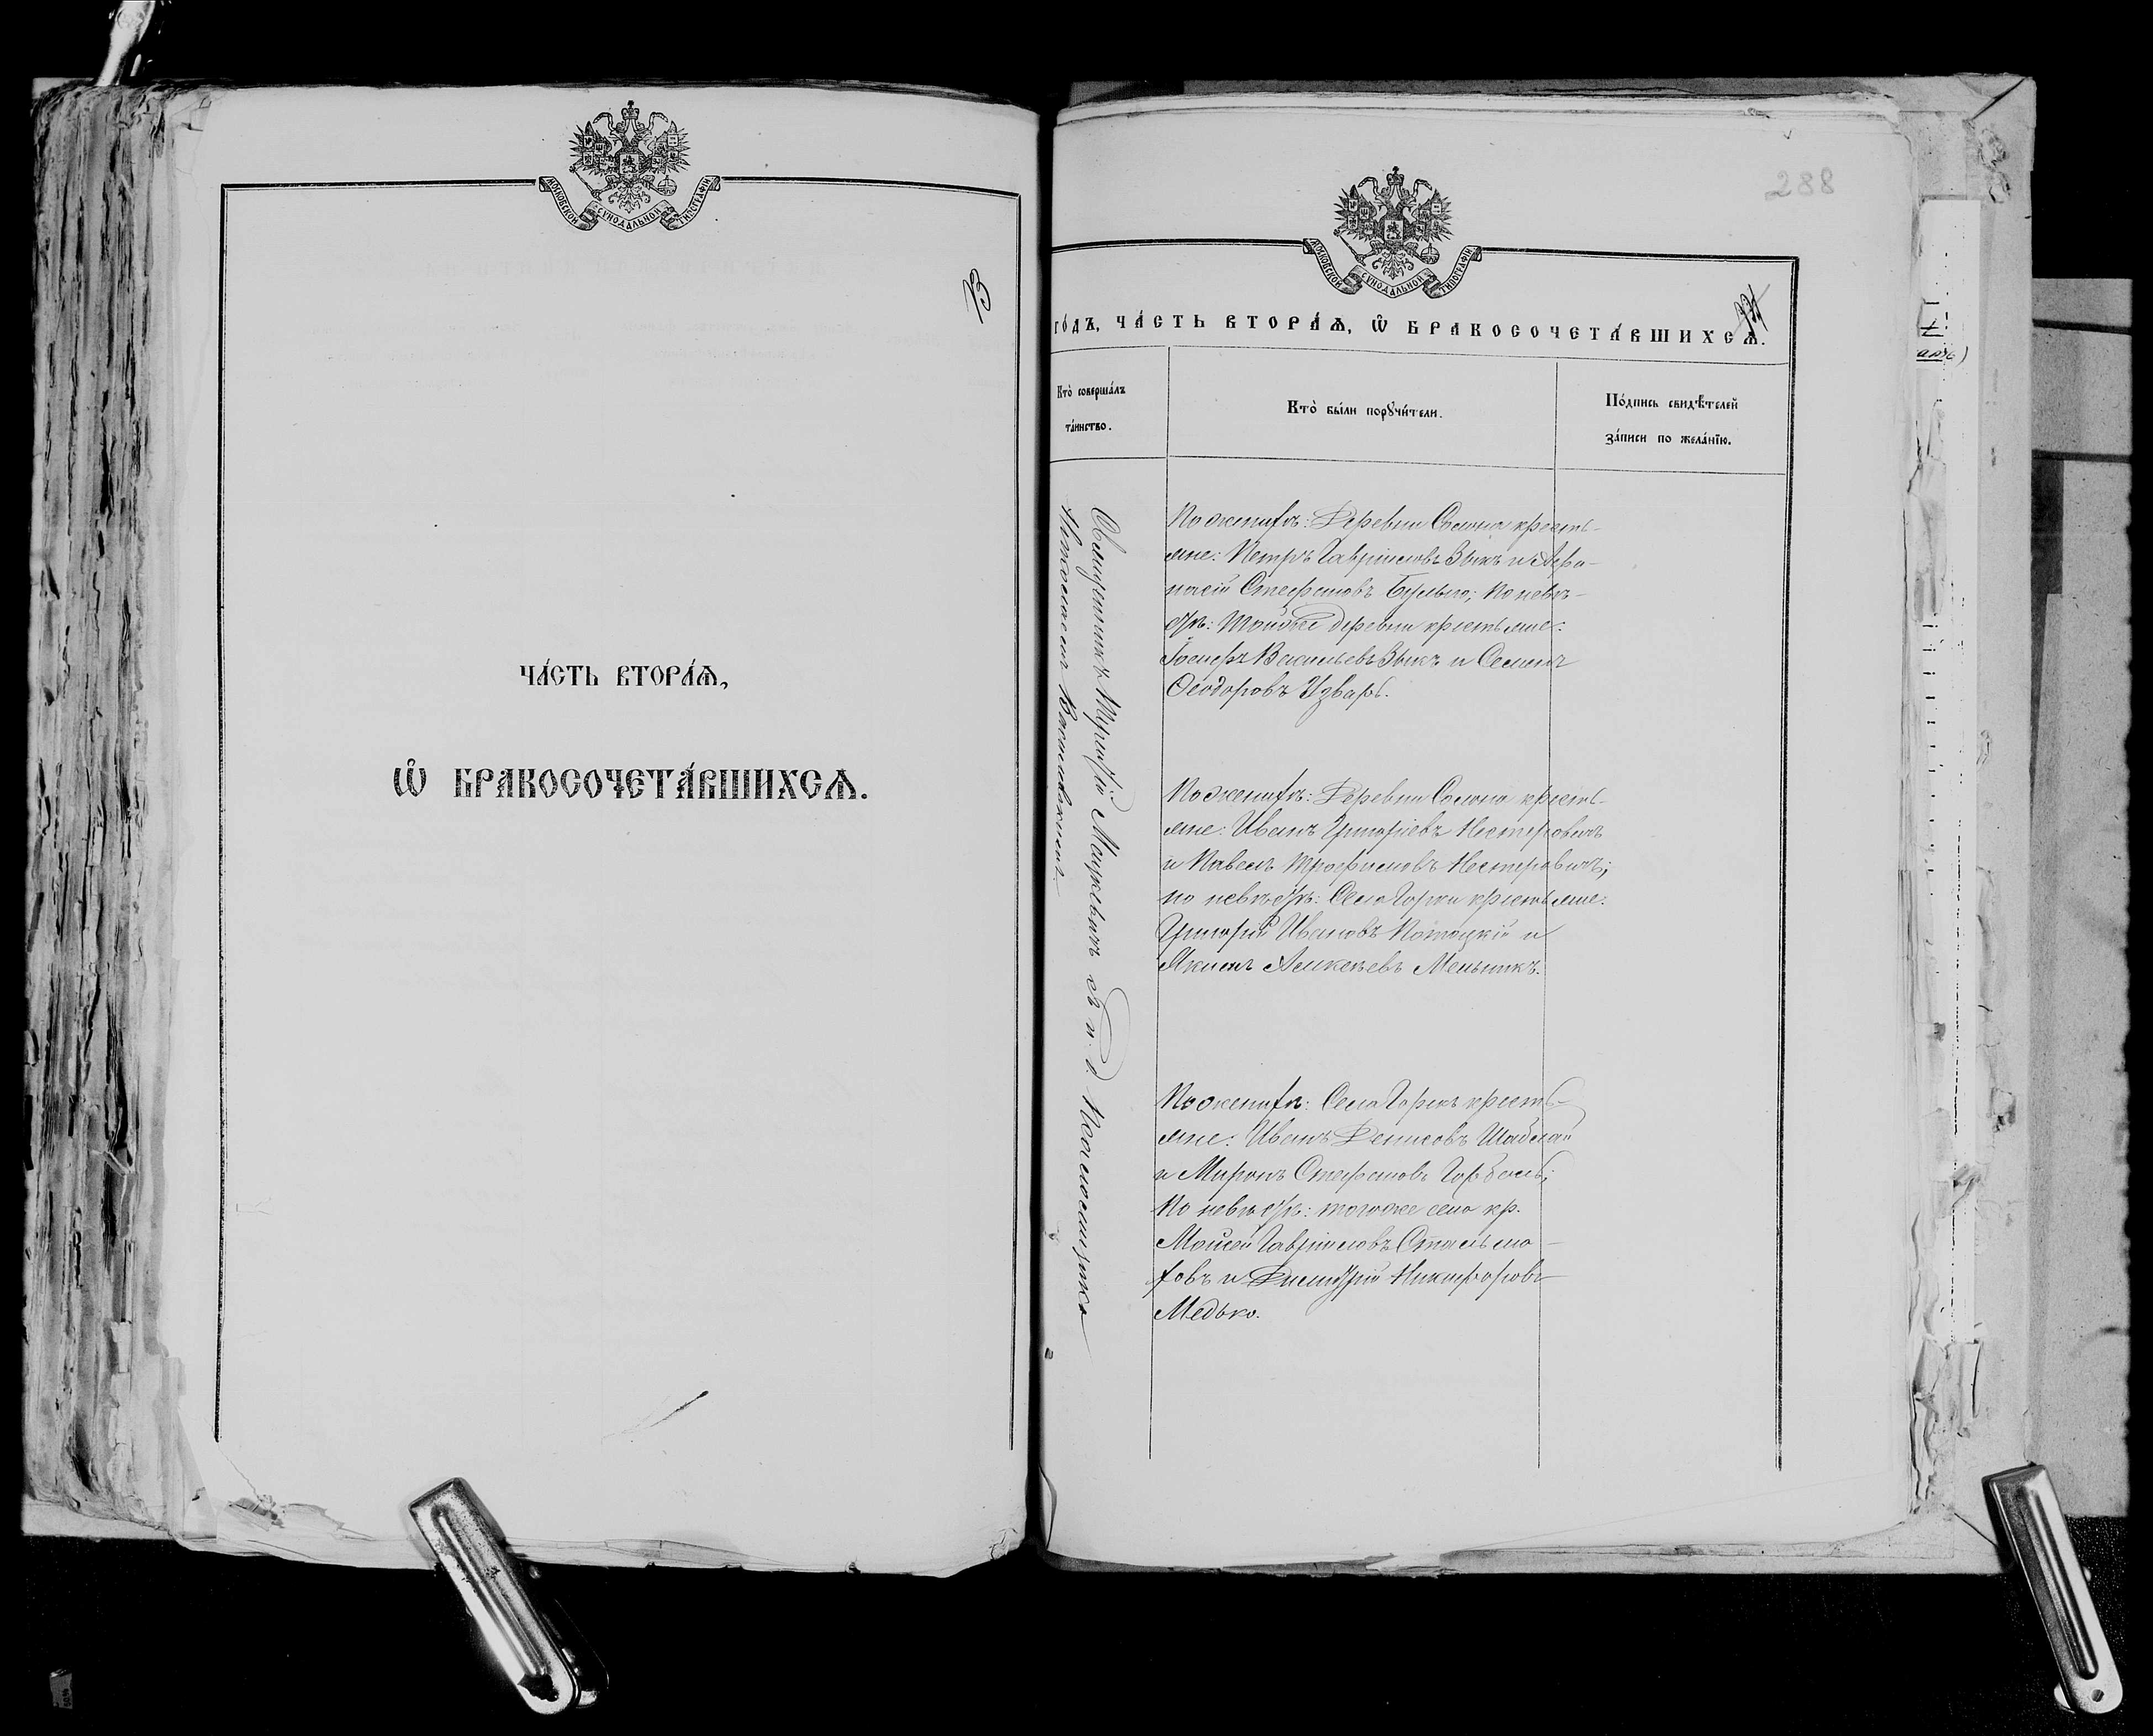 МОСКОВСКОЙ СѴНОДАЛЬНОЙ ТИПОГРАФІИ
ЧА́СТЬ ВТОРА́Ѧ,
Ѡ҆ БРАКОСОЧЕТА́ВШИХСѦ.
288
МОСКОВСКОЙ СѴНОДАЛЬНОЙ ТИПОГРАФІИ
ГО́ДЪ, ЧА́СТЬ ВТОРА́Ѧ, Ѡ҆ БРАКОСОЧЕТА́ВШИХСѦ.
Кто̀ соверша́лъ
та́инство.
Кто̀ бы́ли порꙋчи́тели.
По́дпись свидѣ́телей
за́писи по жела́нїю.
Священникъ Григорій Мацкевичъ съ и. д. Псаломщика
По женихѣ: Деревни крестья-
яне: Петръ Гавріиловъ Зыкъ и Афа-
насій Стефановъ Бульго; По невѣ-
стѣ: тойже деревни крестьяне:
Іосифъ Васильевъ Зыкъ и Семенъ
Ѳеодоровъ Узваръ.
По женихѣ: Деревни кресть-
яне: Иванъ Григоріевъ Нестеровичъ
и Павелъ Трофимовъ Нестеровичъ;
по невѣстѣ: Села Горки крестьяне:
Григорій Ивановъ Потоцкій и
Якимъ Алексѣевъ Мельникъ.
По женихѣ: Села Горкъ кресть-
яне: Иванъ Денисовъ Шаблай
и Миронъ Стефановъ Горбань;
По невѣстѣ: тогоже села кр.
Моисей Гавріиловъ Стальма-
ховъ и Димитрій Никифоровъ
Медько.